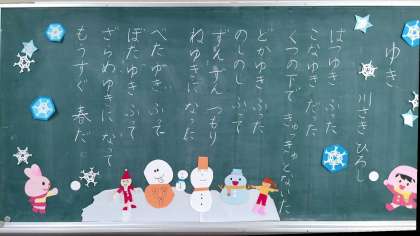 ゆき 川さき ひろし
はつゆき ふった
こなゆき だった
くつの下で きゅっきゅとないた
どかゆき ふった
のしのし ふって
ずんずん つもり
ねゆきに なった
べたゆき ふって
ぼたゆき ふって
ざらめゆきに なって
もうすぐ 春だ